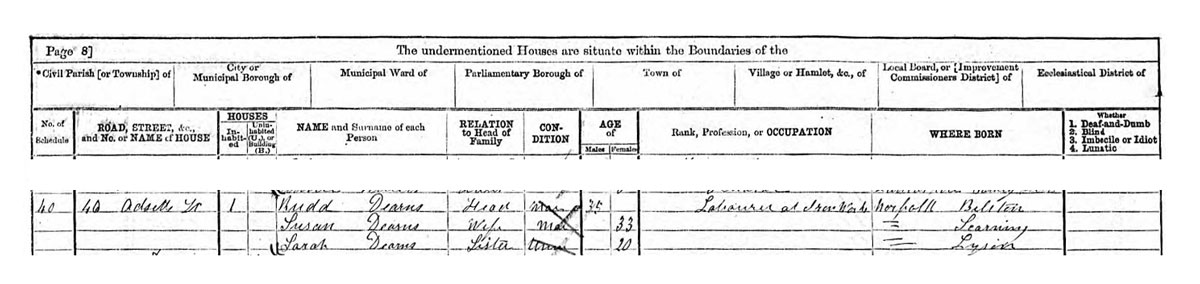 Page 8]
The undermentioned Houses are situate within the Boundaries of the
*Civil Parish [or Township] of
City or Municipal Borough of
Municipal Ward of
Parliamentary Borough of
Town of
Village or Hamlet, &c., of
Local Board, or [Improvement Commissioners District] of
Ecclesiastical District of
No. of Schedule
ROAD, STREET, &c., and No. or NAME of HOUSE
HOUSES
In-habit-ed
Unin-habited (U.), or Building (B.)
NAME and Surname of each Person
RELATION to Head of Family
CON-DITION
AGE of
Males
Females
Rank, Profession, or OCCUPATION
WHERE BORN
Whether
1. Deaf-and-Dumb
2. Blind
3. Imbecile or Idiot
4. Lunatic
40 1 Rudd Dearns Head Mar 35 Labourer at Iron Works Norfolk
Susan Dearns Wife Mar 33 = Scarning
Sarah Dearns Sister 20 =